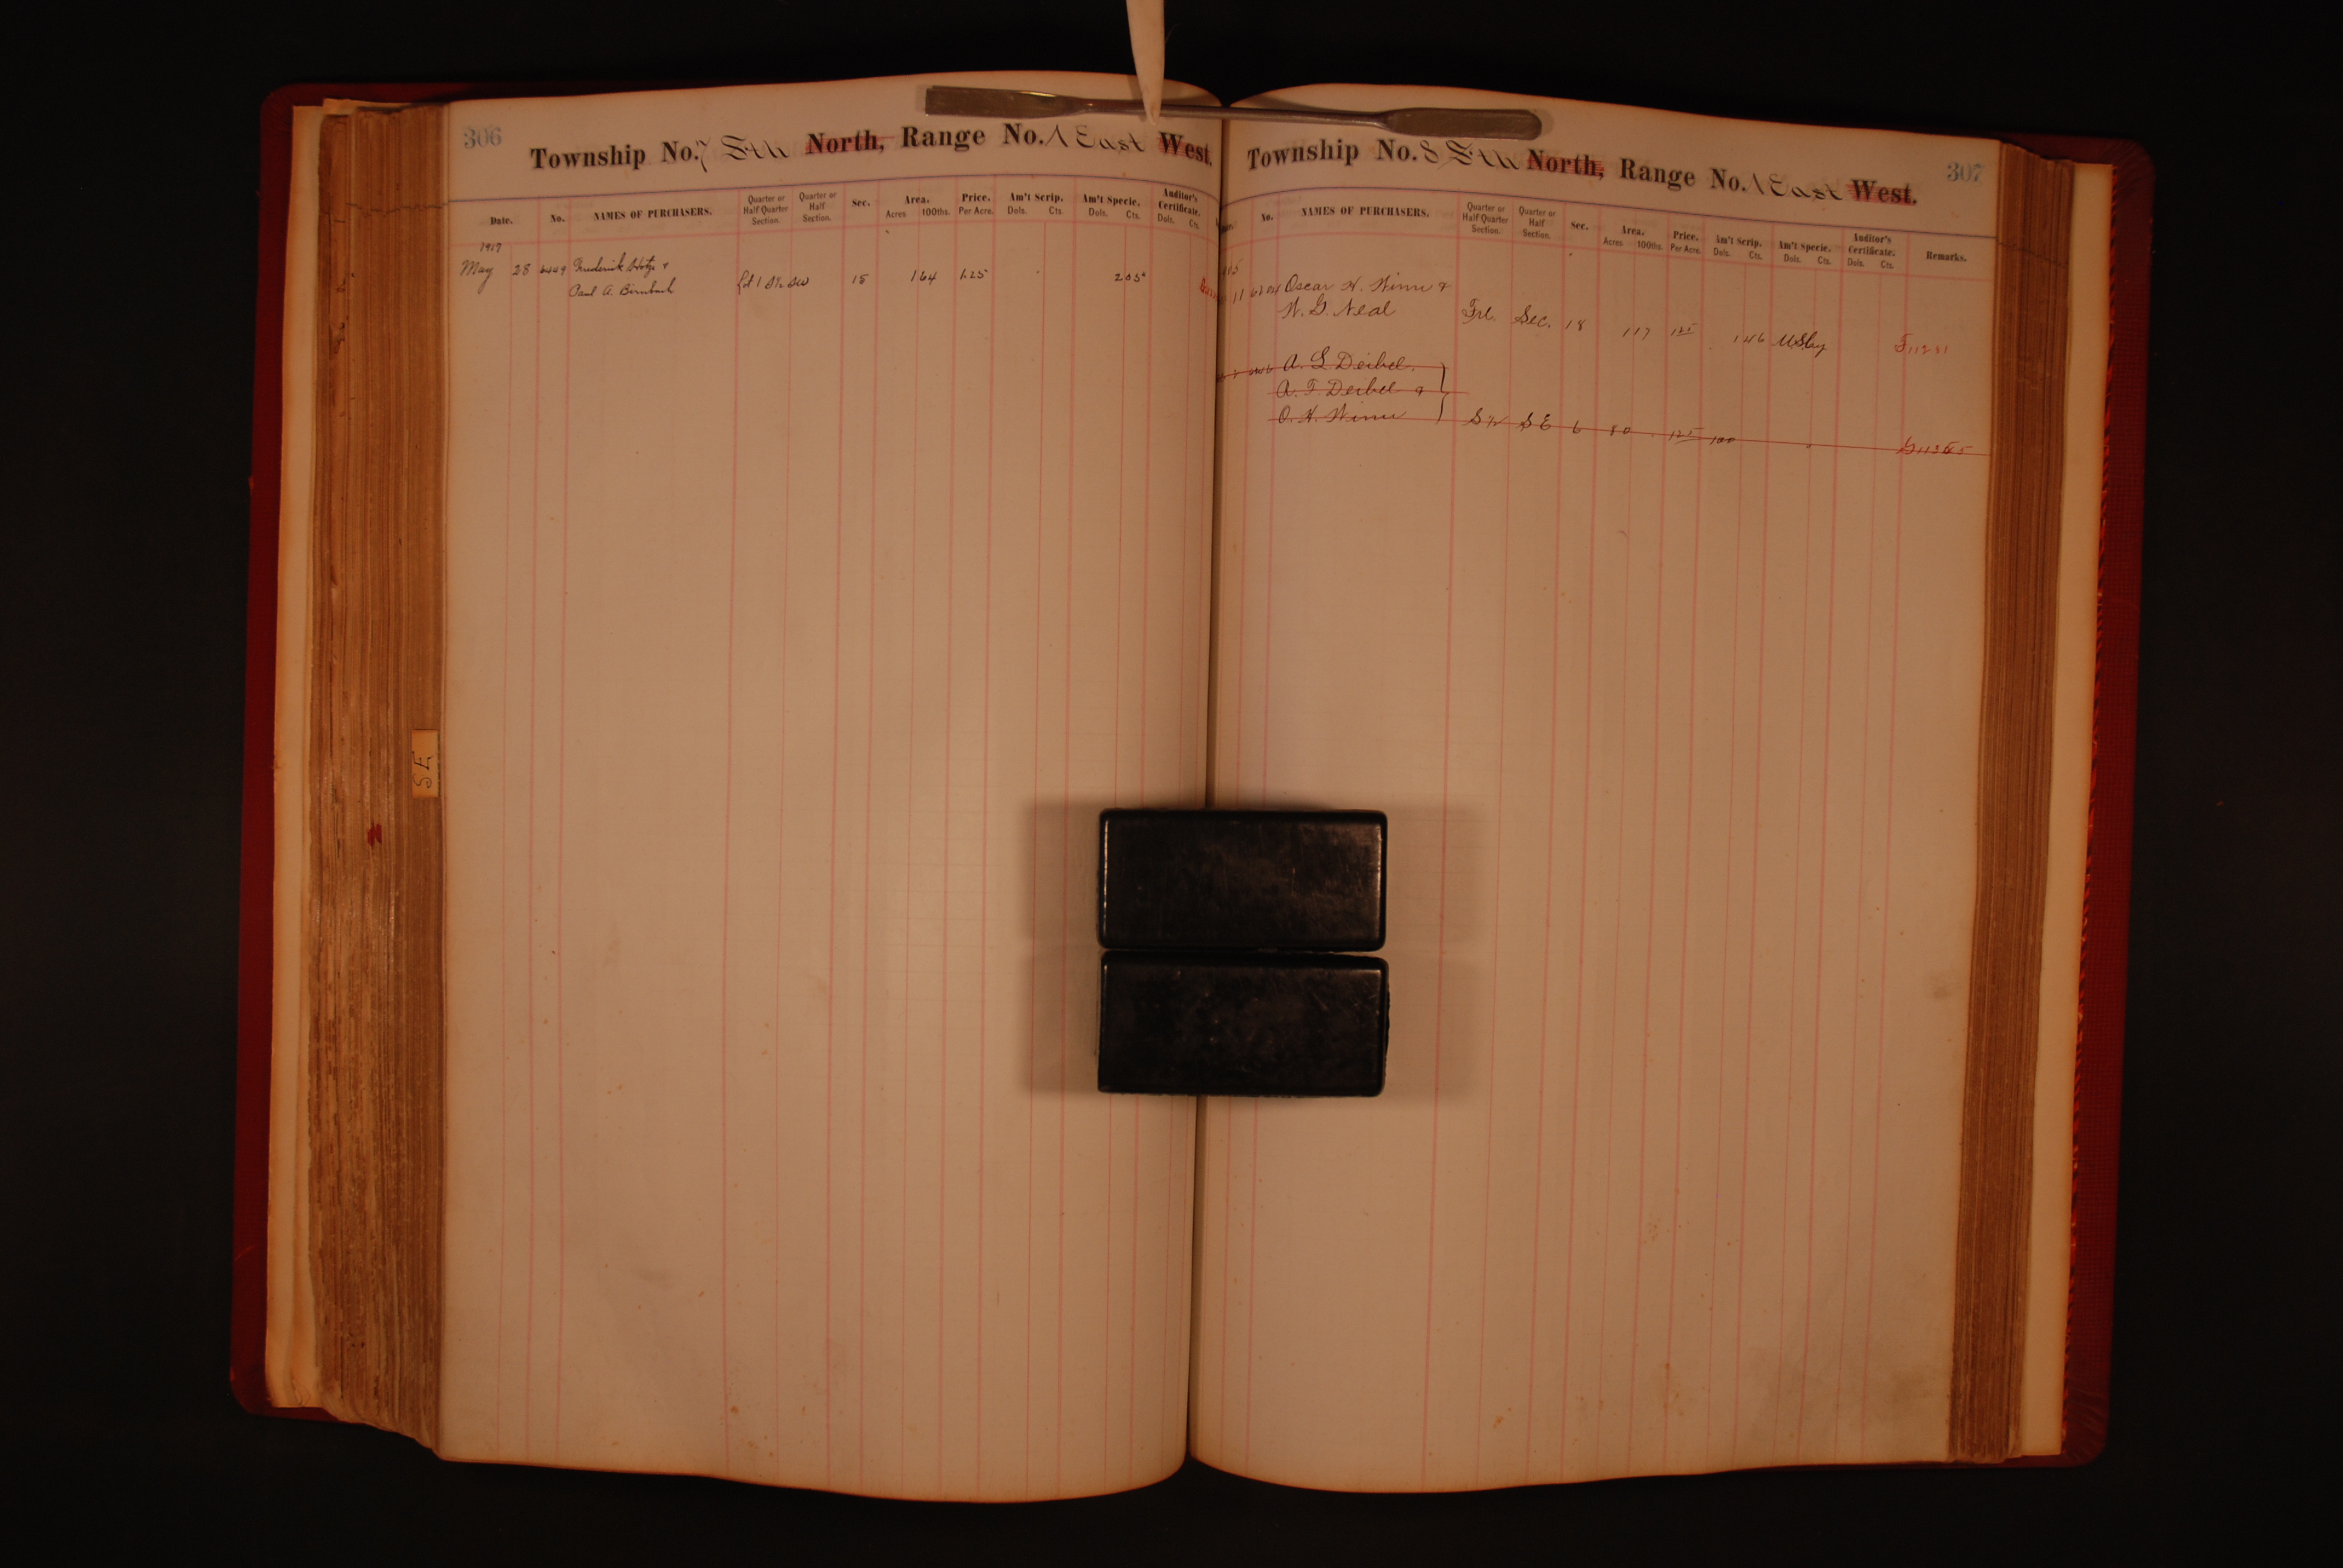 306
Township No. 7 Sth North, Range No. 1 East West.
Date. No. NAMES OF PURCHASERS. Quarter or Half Quarter Section. Quarter or Half Section. Sec. Area. Acres 100ths. Price. Per Acre. Am't Scrip. Dols. Cts. Am't Specie. Dols. Cts. Auditor's Certificate. Dols. Cts.
1917
May 28 6449 Frederick Hotze &
Paul A. Birnbach Lot 1 S½ SW 15 164 1.25 205
SE
307
Township No. 8 Sth North, Range No. 1 East West.
No. NAMES OF PURCHASERS. Quarter or Half Quarter Section. Quarter or Half Section. Sec. Area. Acres 100ths. Price. Per Acre. Am't Scrip. Dols. Cts. Am't Specie. Dols. Cts. Auditor's Certificate. Dols. Cts. Remarks.
11 Oscar H. Winn &
W. G. Neal Frl. Sec. 18 117 125 146
A. L. Deibel
A. F. Deibel &
O. H. Winn S½ SE 6 80 125 100